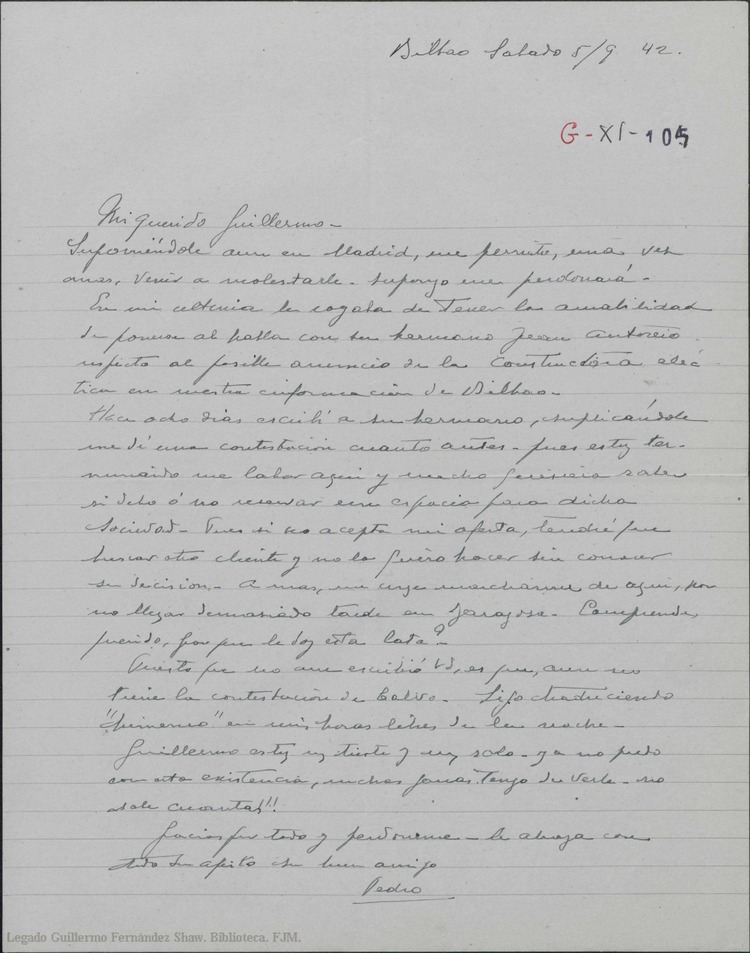 Bilbao Sabado 5/9 42.
G-XI-105
Mi querido Guillermo-
Suponiéndole aun en Madrid, me permito, una vez
mas, venir a molestarle- supongo me perdonará-
En mi ultima le rogaba de tener la amabilidad
de ponerse al habla con su hermano Juan Antonio
respecto al posible anuncio de la Constructora eléc
tica en nuestra información de Bilbao-
Hace ocho dias escribí a su hermano, suplicándole
me dé una contestación cuanto antes- pues estoy ter-
minando me labor aqui y mucho precisaria saber
si debo ó no reservar un espacio para dicha
Sociedad- Pues si no acepta mi oferta, tendré que
buscar otro cliente y no lo quiero hacer sin conocer
su decision- A mas, me urge marcharme de aqui, por
no llegar demasiado tarde en Zaragoza- Comprende,
querido, por que le doy esta lata?
Puesto que no me escribió Vd, es que, aun no
tiene la contestación de Calvo- Sigo traduciendo
en mis horas libres de la noche-
Guillermo estoy muy triste y muy solo- ya no puedo
con esta existencia, muchas ganas tengo de verle- no
sabe cuantas!!
Gracias por todo y perdoneme- le abraza con
todo su afecto su buen amigo
Pedro
Legado Guillermo Fernández Shaw. Biblioteca. FJM.